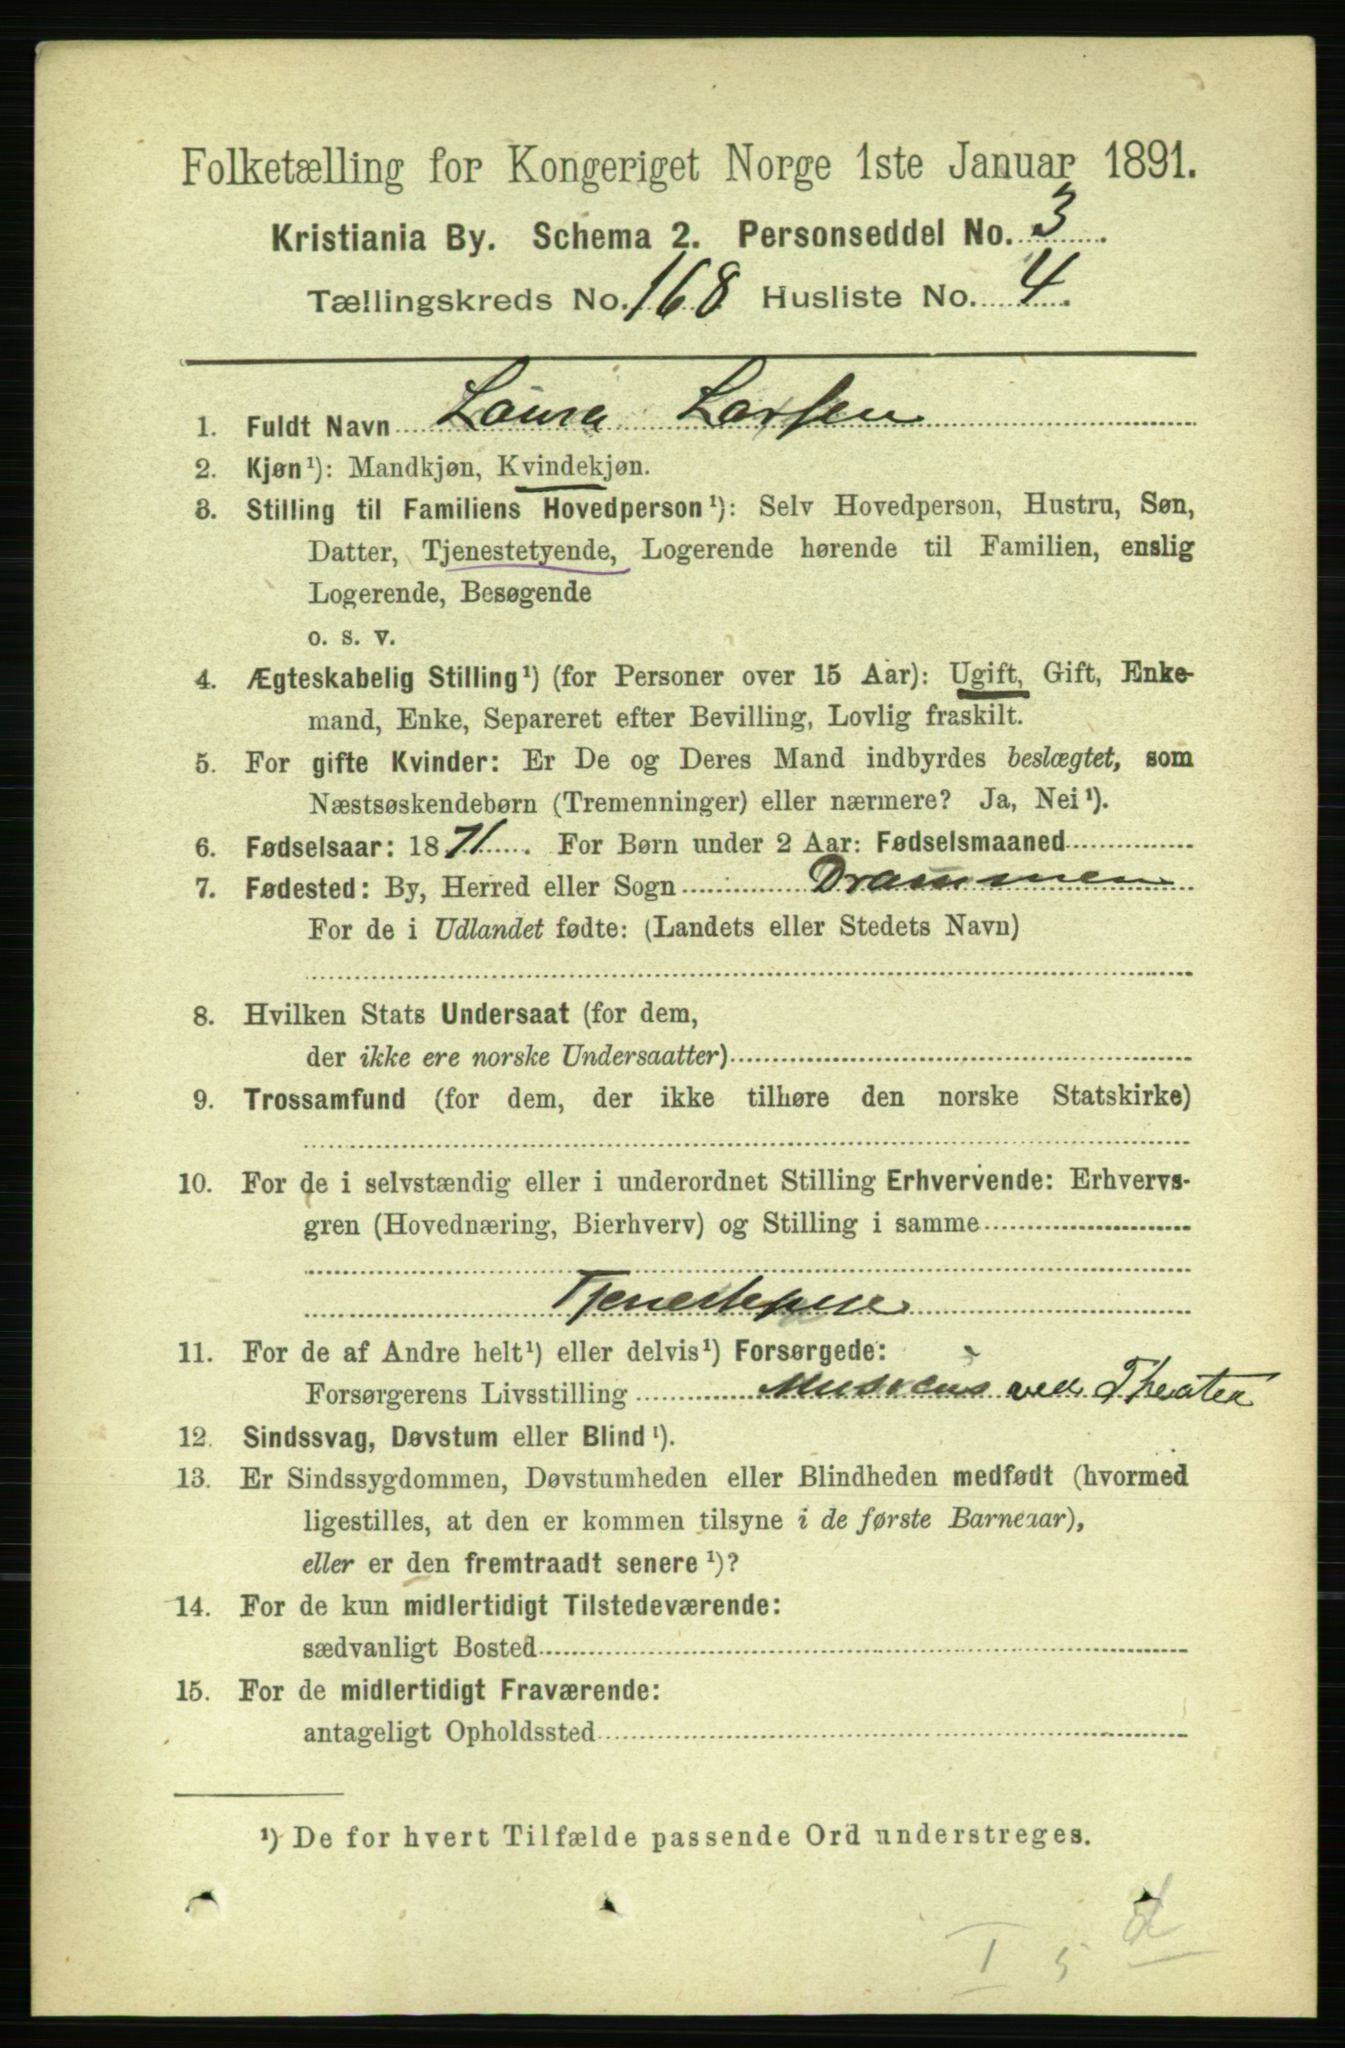 Folketælling for Kongeriget Norge 1ste Januar 1891.
Kristiania By. Schema 2. Personseddel No. 3.
Tællingskreds No. 168 Husliste No. 4.
1. Fuldt Navn Laura Larsen
2. Kjøn¹): Mandkjøn, Kvindekjøn.
3. Stilling til Familiens Hovedperson¹): Selv Hovedperson, Hustru, Søn,
Datter, Tjenestetyende, Logerende hørende til Familien, enslig
Logerende, Besøgende
o. s. v.
4. Ægteskabelig Stilling¹) (for Personer over 15 Aar): Ugift, Gift, Enke-
mand, Enke, Separeret efter Bevilling, Lovlig fraskilt.
5. For gifte Kvinder: Er De og Deres Mand indbyrdes beslægtet, som
Næstsøskendebørn (Tremenninger) eller nærmere? Ja, Nei¹).
6. Fødselsaar: 1871. For Børn under 2 Aar: Fødselsmaaned
7. Fødested: By, Herred eller Sogn Drammen
For de i Udlandet fødte: (Landets eller Stedets Navn)
8. Hvilken Stats Undersaat (for dem,
der ikke ere norske Undersaatter)
9. Trossamfund (for dem, der ikke tilhøre den norske Statskirke)
10. For de i selvstændig eller i underordnet Stilling Erhvervende: Erhvervs-
gren (Hovednæring, Bierhverv) og Stilling i samme
Tjenestepige
11. For de af Andre helt¹) eller delvis¹) Forsørgede:
Forsørgerens Livsstilling Musicus ved Theater
12. Sindssvag, Døvstum eller Blind¹).
13. Er Sindssygdommen, Døvstumheden eller Blindheden medfødt (hvormed
ligestilles, at den er kommen tilsyne i de første Barneaar),
eller er den fremtraadt senere¹)?
14. For de kun midlertidigt Tilstedeværende:
sædvanligt Bosted
15. For de midlertidigt Fraværende:
antageligt Opholdssted
¹) De for hvert Tilfælde passende Ord understreges.
I 5 d